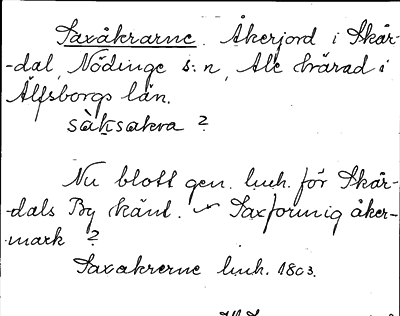 Saxåkrarne. Åkerjord i Skår-
-dal, Nödinge s:n, Ale härad i
Älfsborgs län.
sàksakra ?
Nu blott gen. huh. för Skår-
-dals By känt. ~ Saxformig åker-
-mark ?
Saxakrerne huh. 1803.